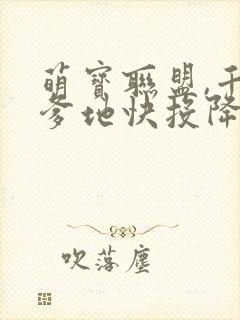 萌寶聯盟,千
爹地快投降
吹落塵